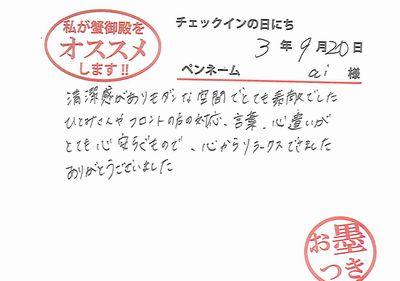 私が蟹御殿を
オススメ
します!!
チェックインの日にち
3年9月20日
ペンネーム ai 様
清潔感がありモダンな空間でとても素敵でした
ひとみさんやフロントの方の対応、言葉、心遣いが
とても心安らぐもので、心からリラックスできました
ありがとうございました
お墨
つき